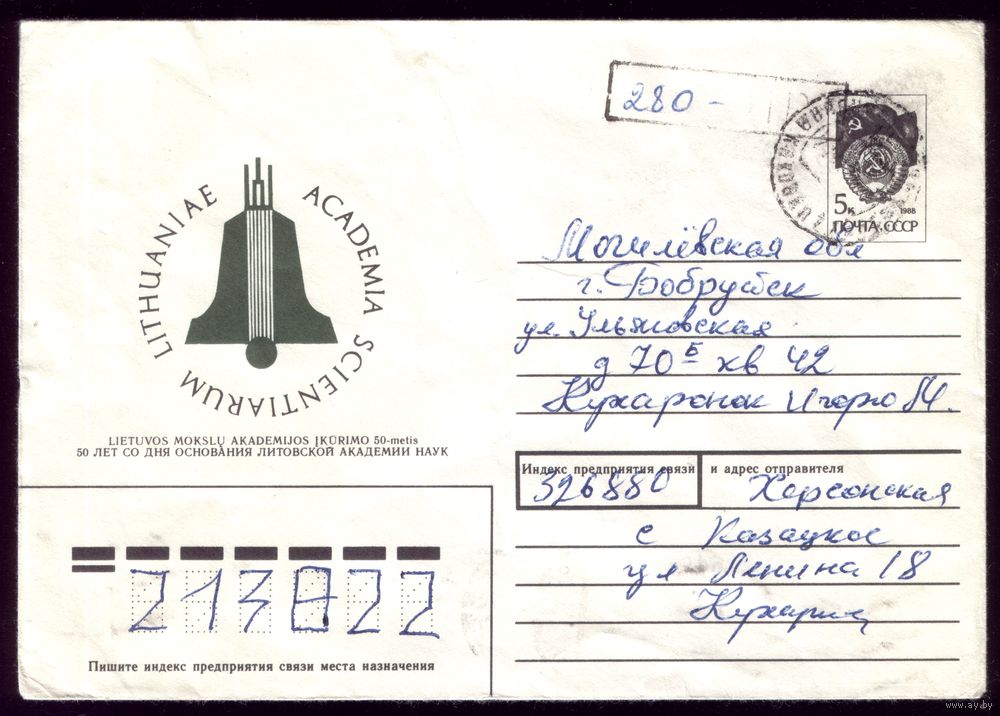 280 -
5к 1988
ПОЧТА СССР
LITHUANIAE ACADEMIA SCIENTIARUM
LIETUVOS MOKSLŲ AKADEMIJOS ĮKŪRIMO 50-metis
50 ЛЕТ СО ДНЯ ОСНОВАНИЯ ЛИТОВСКОЙ АКАДЕМИИ НАУК
Могилёвская обл
г. Бобруйск
ул. Ульяновская
д 70 Б кв 42
Игорю
Индекс предприятия связи и адрес отправителя
326880 Херсонская
с Казацкое
ул Ленина 18
213822
Пишите индекс предприятия связи места назначения
www.ay.by